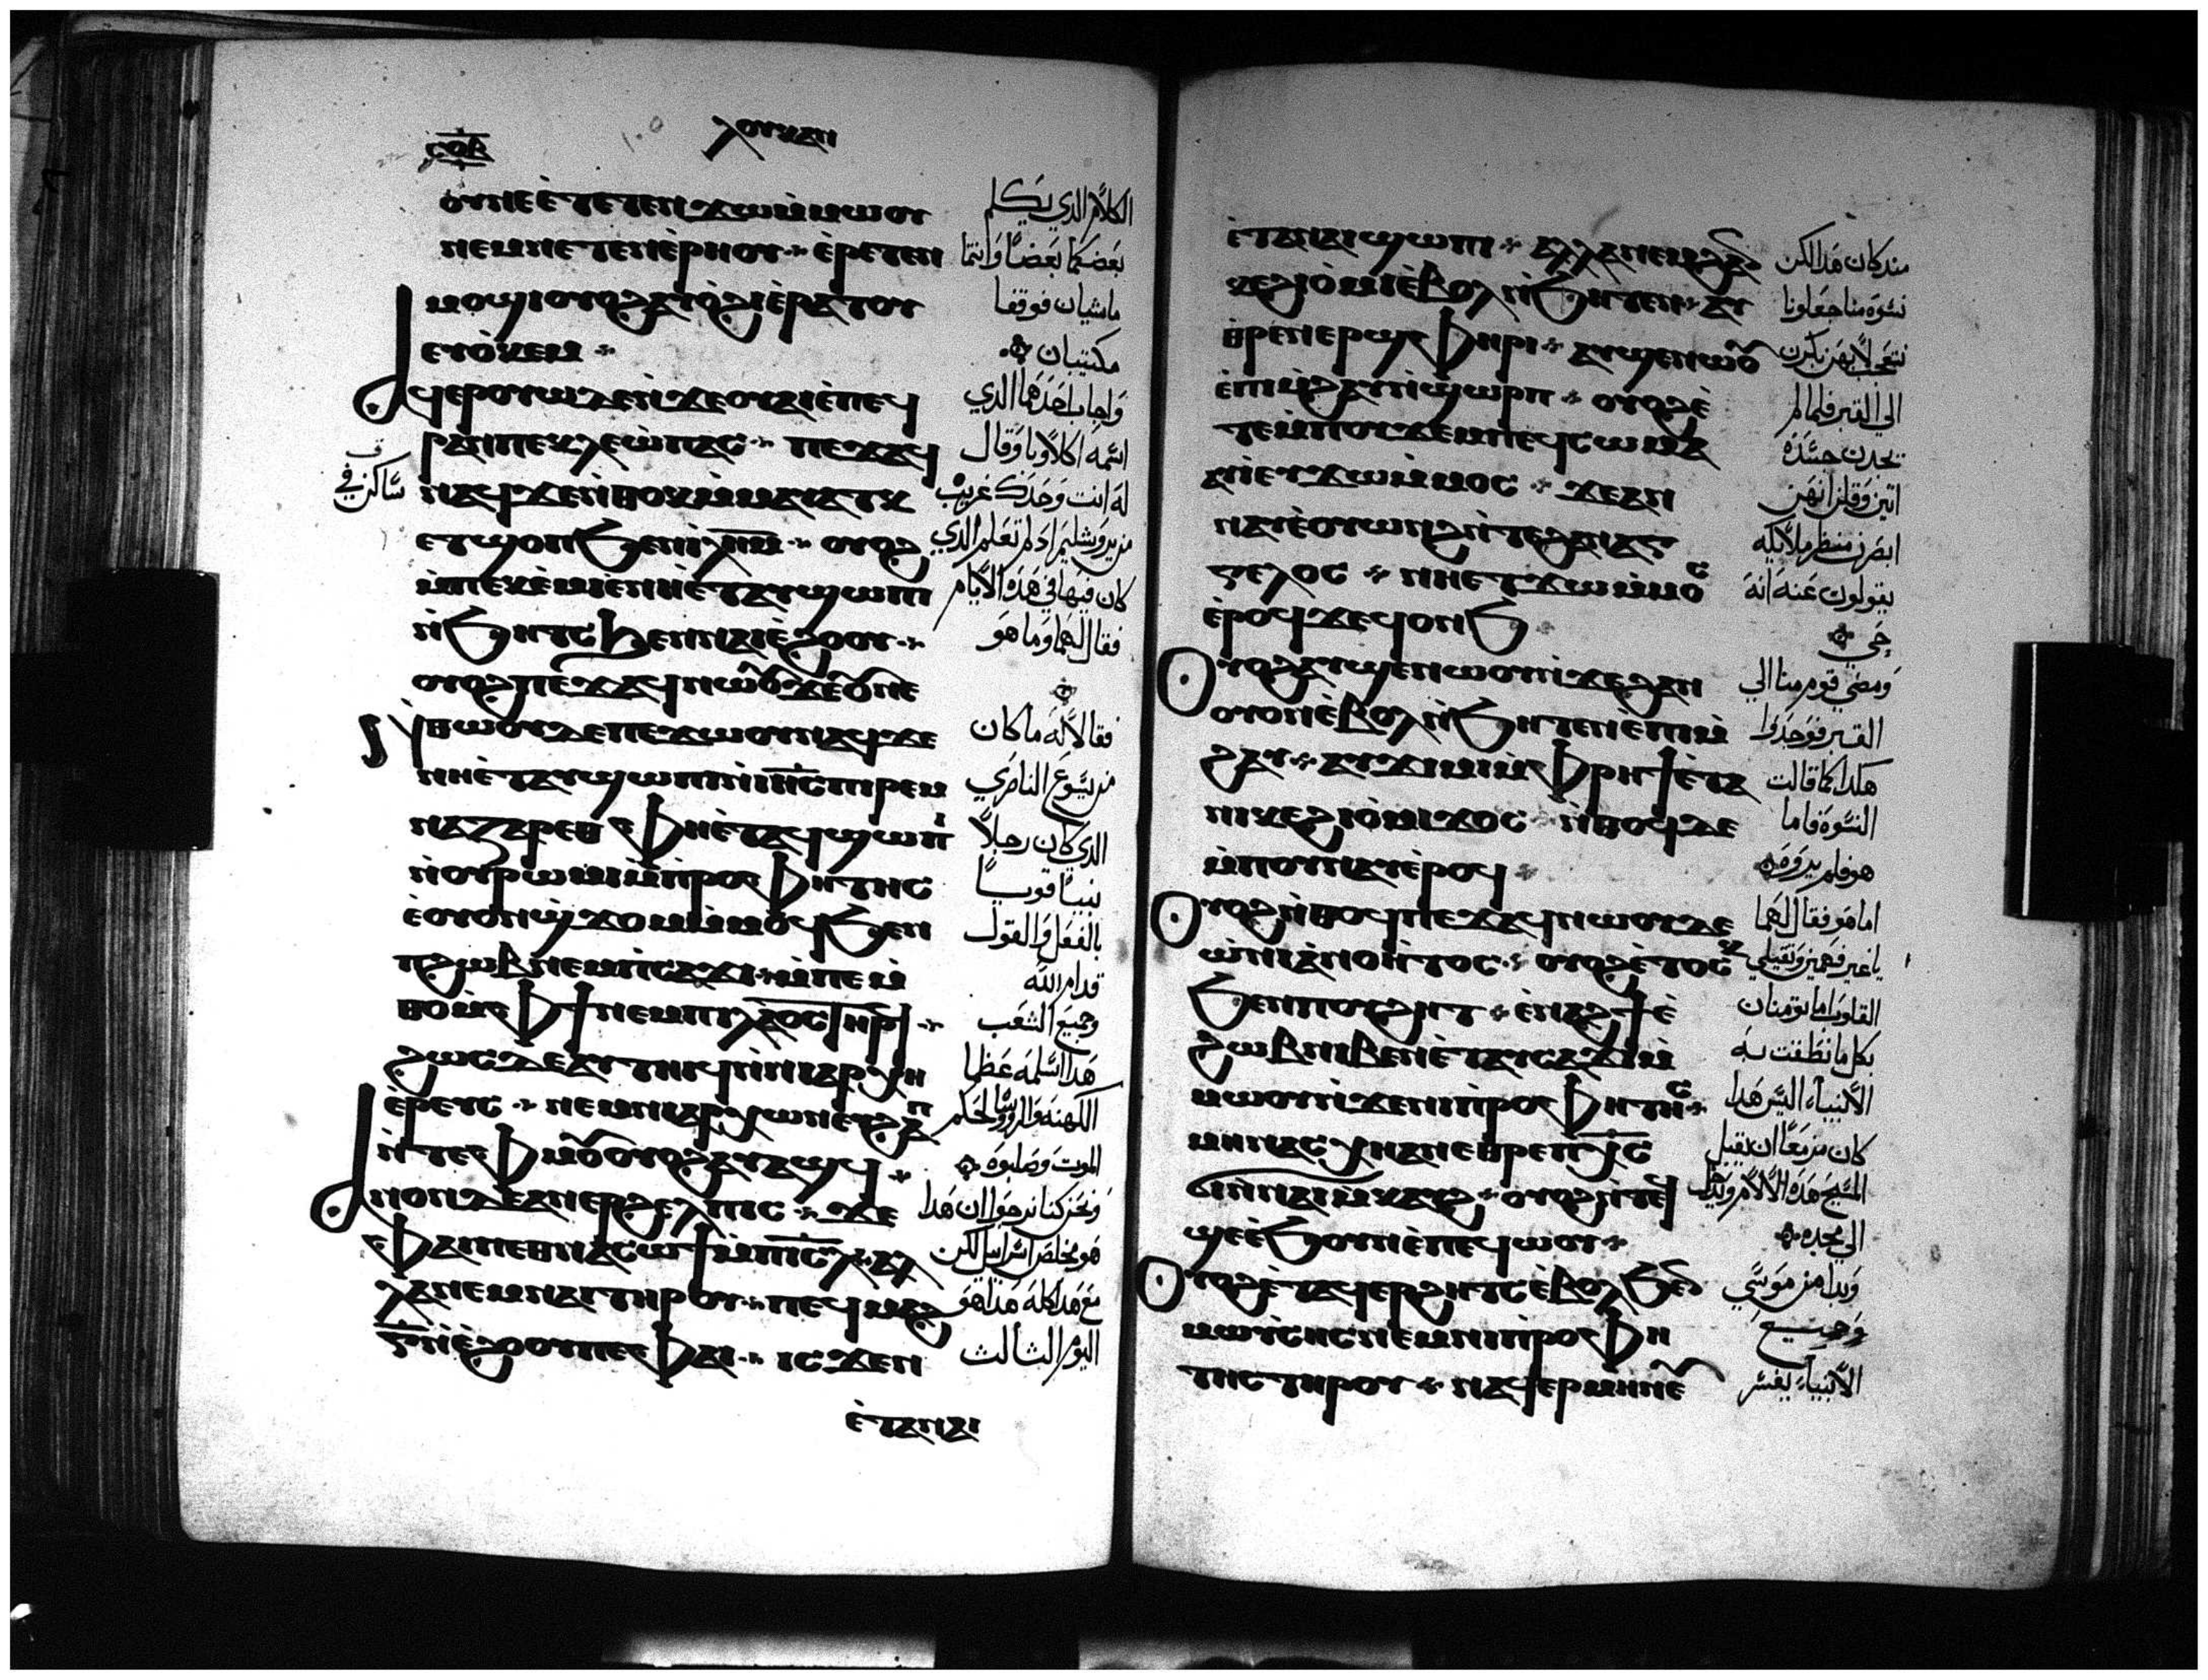 ⲥⲟⲃ
ⲗⲟⲩⲕⲁⲛ
ⲟⲩⲛⲉ ⲉ̀ⲧⲉⲧⲉⲛϫⲱ ⲙ̀ⲙⲱⲟⲩ
ⲛⲉⲙ ⲛⲉⲧⲉⲛⲉ̀ⲣⲏⲟⲩ ⁘ ⲉ̀ⲣⲉⲧⲉⲛ
ⲙⲟϣⲓ ⲟⲩⲟϩ ⲁⲩⲟ̀ϩⲓ ⲉ̀ⲣⲁⲧⲟⲩ
ⲉⲩⲟ̀ⲕⲉⲙ ⁘
ⲁϥⲉⲣⲟⲩⲱ ⲇⲉ ⲛ̀ϫⲉ ⲟⲩⲁⲓ ⲉ̀ⲡⲉϥ
ⲣⲁⲛ ⲡⲉ ⲕⲗⲉⲱ̀ⲡⲁⲥ ⁘ ⲡⲉϫⲁϥ
ⲛⲁϥ ϫⲉ ⲛ̀ⲑⲟⲕ ⲙ̀ⲙⲁⲩⲁⲧⲕ
ⲉⲧϣⲟⲡ ϧⲉⲛ ⲓ̀ⲗ̅ⲏ̅ⲙ̅ ⁘ ⲟⲩⲟϩ
ⲙ̀ⲡⲉⲕⲉ̀ⲙⲓ ⲉ̀ⲛⲏ ⲉ̀ⲧⲁⲩϣⲱⲡⲓ
ⲛ̀ϧⲏⲧⲥ ϧⲉⲛ ⲛⲁⲓⲉ̀ϩⲟⲟⲩ ⁘
ⲟⲩⲟϩ ⲡⲉϫⲁϥ ⲛⲱⲟⲩ ϫⲉ ⲟⲩ ⲛⲉ
ⲛ̀ⲑⲱⲟⲩ ⲇⲉ ⲡⲉϫⲱⲟⲩ ⲛⲁϥ ϫⲉ
ⲛⲏ ⲉ̀ⲧⲁⲩϣⲱⲡⲓ ⲛ̀ⲓ̅ⲏ̅ⲥ̅ ⲡⲓⲣⲉⲙ
ⲛⲁⲍⲁⲣⲉⲑ ⲫⲏ ⲉ̀ⲧⲁϥϣⲱⲡⲓ
ⲛ̀ⲟⲩⲣⲱⲙⲓ ⲙ̀ⲡ̀ⲣⲟⲫⲏⲧⲏⲥ
ⲉ̀ⲟⲩⲟⲛ ϣ̀ϫⲟⲙ ⲙ̀ⲙⲟϥ ϧⲉⲛ
ⲡϩⲱⲃ ⲛⲉⲙ ⲡ̀ⲥⲁϫⲓ ⁘ ⲙ̀ⲡⲉⲙ̀
ⲑⲟ ⲙ̀ⲫϯ ⲛⲉⲙ ⲡⲓⲗⲁⲟⲥ ⲧⲏⲣϥ ⁘
ϩⲱⲥ ⲇⲉ ⲁⲩⲧⲏⲓϥ ⲛ̀ⲛⲓⲁⲣⲭⲏ
ⲉ̀ⲣⲉⲩⲥ ⁘ ⲛⲉⲙ ⲛⲓⲁⲣⲭⲱⲛ ⲉⲩϩⲁⲡ
ⲛ̀ⲧⲉ ⲫⲙⲟⲩ ⲟⲩⲟϩ ⲁⲩⲁϣϥ ⁘
ⲁⲛⲟⲛ ⲇⲉ ⲁⲛⲉⲣϩⲉⲗⲡⲓⲥ ⁘ ϫⲉ
ⲫⲁⲓ ⲡⲉⲑⲛⲁⲥⲱϯ ⲙ̀ⲡ̅ⲓ̅ⲥ̅ⲗ̅ ⁘ ⲁⲗ
ⲗⲁ ⲛⲉⲙ ⲛⲁⲓ ⲧⲏⲣⲟⲩ ⁘ ⲡⲉϥⲙⲁϩ
ⲅ̅ ⲛ̀ⲉ̀ϩⲟⲟⲩ ⲡⲉ ⲫⲁⲓ ⁘ ⲓⲥϫⲉⲛ
ⲉ̀ⲧⲁⲛⲁⲓ
الكلام الذي يكلم
بعضكما بعضا وانتما
ماشيان فوقفا
مكتئبان
واجاب احدهما الذي
اسمه اكلاوبا وقال
له انت وحدك غريب
ساكن في
من يروشليم اد لم تعلم الذي
كان فيها في هده الايام
فقال لهما وما هو
فقالا له ما كان
من يسوع الناصري
الذي كان رجلا
نبيا قويا
بالفعل والقول
قدام الله
وجميع الشعب
هدا اسلمه عظما
الكهنه والروسا لحكم
الموت وصلبوه
ونحن كنا نرجوا ان هدا
هو مخلص اسراييل لكن
مع هدا كله هدا هو
اليوم الثالث
ⲉ̀ⲧⲁⲛⲁⲓ ϣⲱⲡⲓ ⁘ ⲁⲗⲗⲁ ⲛⲉⲙ ϩⲁⲛ
ⲕⲉϩⲓⲟ̀ⲙⲓ ⲉ̀ⲃⲟⲗ ⲛ̀ϧⲏⲧⲉⲛ ⁘ ⲁⲩ
ⲑⲣⲉⲛⲉⲣϣⲫⲏⲣⲓ ⁘ ⲁⲩϣⲉⲛⲱⲟⲩ
ⲉ̀ⲡⲓⲙ̀ϩⲁⲩ ⲛ̀ϣⲱⲣⲡ ⁘ ⲟⲩⲟϩ ⲉ̀
ⲧⲉⲙ̀ⲡⲟⲩϫⲉⲙ ⲡⲉϥⲥⲱⲙⲁ
ⲁⲩⲓ̀ ⲉⲩϫⲱ ⲙ̀ⲙⲟⲥ ⁘ ϫⲉ ⲁⲛ
ⲛⲁⲩ ⲉ̀ⲟⲩⲱⲛϩ ⲛ̀ⲧⲉ ϩⲁⲛⲁⲅ
ⲅⲉⲗⲟⲥ ⁘ ⲛⲏ ⲉⲧϫⲱ ⲙ̀ⲙⲟⲥ
ⲉ̀ⲣⲟϥ ϫⲉ ϥⲟⲛϧ ⁘
ⲟⲩⲟϩ ⲁⲩϣⲉⲛⲱⲟⲩ ⲛ̀ϫⲉ ϩⲁⲛ
ⲟⲩⲟⲛ ⲉ̀ⲃⲟⲗ ⲛ̀ϧⲏⲧⲉⲛ ⲉ̀ⲡⲓⲙ̀
ϩⲁⲩ ⁘ ⲁⲩϫⲓⲙⲓ ⲙ̀ⲫⲣⲏϯ ⲉ̀ⲧⲁ
ⲛⲓⲕⲉϩⲓⲟ̀ⲙⲓ ϫⲟⲥ ⁘ ⲛ̀ⲑⲟϥ ⲇⲉ
ⲙ̀ⲡⲟⲩⲛⲁⲩ ⲉ̀ⲣⲟϥ ⁘
ⲟⲩⲟϩ ⲛ̀ⲑⲟϥ ⲡⲉϫⲁϥ ⲛⲱⲟⲩ ϫⲉ
ⲱ̀ ⲛⲓⲁ̀ⲛⲟⲏ̀ⲧⲟⲥ ⁘ ⲟⲩⲟϩ ⲉ̀ⲧⲟⲥⲕ
ϧⲉⲛ ⲡⲟⲩϩⲏⲧ ⁘ ⲉ̀ⲛⲁϩϯ ⲉ̀
ϩⲱⲃ ⲛⲓⲃⲉⲛ ⲉ̀ⲧⲁⲩⲥⲁϫⲓ ⲙ̀
ⲙⲱⲟⲩ ⲛ̀ϫⲉ ⲛⲓⲡ̀ⲣⲟⲫⲏⲧⲏⲥ ⁘
ⲙⲏ ⲛⲁⲥⲭⲏ ⲁⲛ ⲉⲑⲣⲉ ⲡⲭ̅ⲥ̅
ϭⲓ ⲛ̀ⲛⲁⲓⲙ̀ⲕⲁⲩϩ ⁘ ⲟⲩⲟϩ ⲛ̀ⲧⲉϥ
ϣⲉ ⲉ̀ϧⲟⲩⲛ ⲉ̀ⲡⲉϥⲱⲟⲩ ⁘
ⲟⲩⲟϩ ⲉ̀ⲧⲁϥⲉⲣϩⲏⲧⲥ ⲉ̀ⲃⲟⲗ ϧⲉⲛ
ⲙⲱⲩ̀ⲥⲏⲥ ⲛⲉⲙ ⲛⲓⲡ̀ⲣⲟⲫⲏ
ⲧⲏⲥ ⲧⲏⲣⲟⲩ ⁘ ⲛⲁϥⲉⲣⲙⲏⲛⲉⲩ
مند كان هدا لكن
نسوه منا جعلونا
نتعجب لانهن بكرن
الي القبر فلما لم
يجدن جسده
اتين وقلن انهن
ابصرن منظر ملايكه
يقولون عنه انه
حي
ومضي قوم منا الي
القبر فوجدوا
هكدا كما قالت
النسوه فاما
هو فلم يروه
اما هو فقال لهما
يا غير فهمين وثقيلي
القلوب اما تومنان
بكل ما نطقت به
الانبيا اليس هدا
كان مزمعا ان يقبل
المسيح هده الالام ويدخل
الي مجده
وبدا من موسي
وجميع
الانبيا يفسر